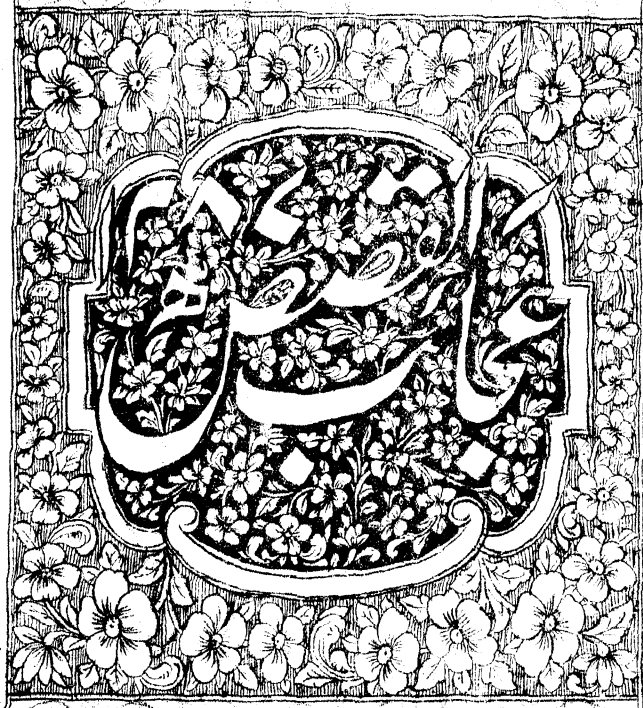 عجائب القصص